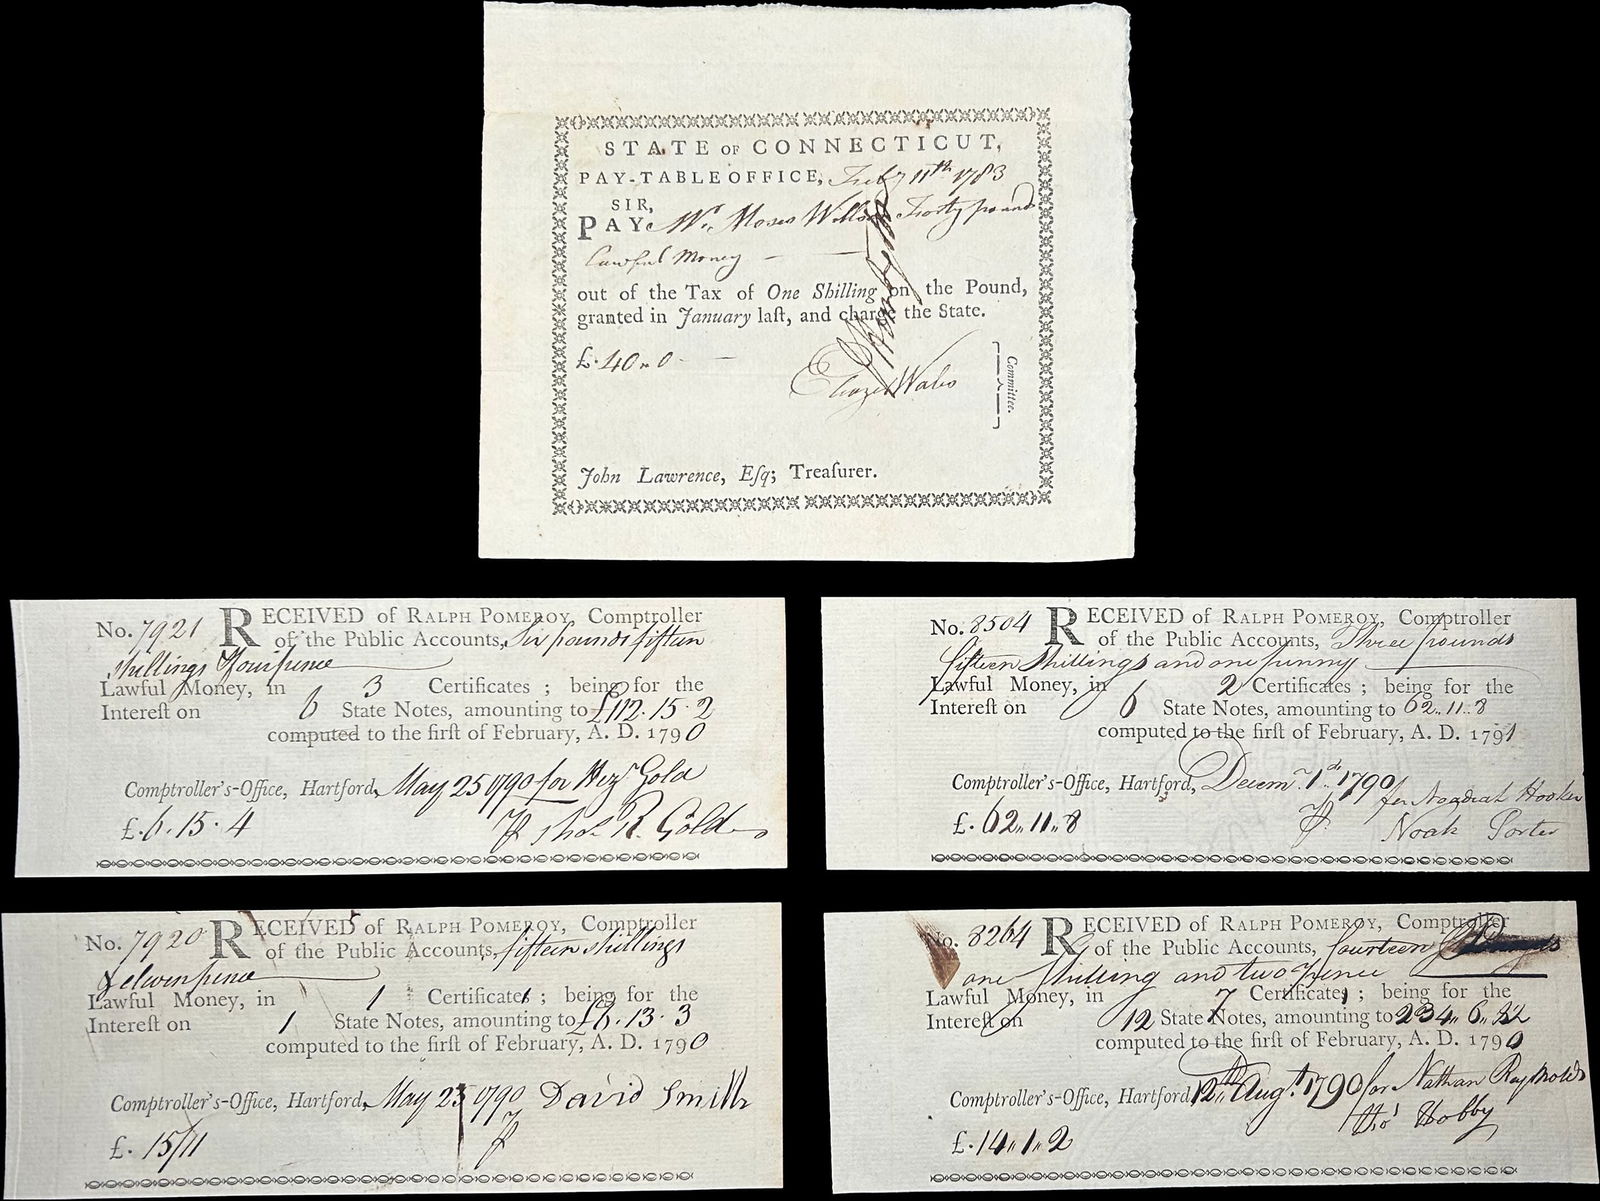 STATE OF CONNECTICUT,
PAY-TABLE OFFICE, Feby 11th 1783
SIR,
PAY Mr. Moses Forty pounds
Lawful Money
out of the Tax of One Shilling on the Pound,
granted in January laſt, and charge the State.
£. 40 " 0
Eleazer Wales
Committee.
John Lawrence, Eſq; Treaſurer.
No. 7921 RECEIVED of RALPH POMEROY, Comptroller
of the Public Accounts, Six pounds fifteen
shillings & fourpence
Lawful Money, in 3 Certificates; being for the
Intereſt on 6 State Notes, amounting to £112.15.2
computed to the firſt of February, A. D. 1790
Comptroller's-Office, Hartford, May 25 1790 for Hezr Gold
£. 6.15.4 R. Gold
No. 8504 RECEIVED of RALPH POMEROY, Comptroller
of the Public Accounts, Three pounds
fifteen shillings and one penny
Lawful Money, in 2 Certificates; being for the
Intereſt on 6 State Notes, amounting to 62..11..8
computed to the firſt of February, A. D. 1791
Comptroller's-Office, Hartford, Decemr. 1st. 1790 for Noadiah Hooker
£. 62..11..8 Noah Porter
No. 7920 RECEIVED of RALPH POMEROY, Comptroller
of the Public Accounts, fifteen shillings
& elevenpence
Lawful Money, in 1 Certificate; being for the
Intereſt on 1 State Notes, amounting to £6.13.3
computed to the firſt of February, A. D. 1790
Comptroller's-Office, Hartford, May 25 1790 David Smith
£. 15/11
No. 8264 RECEIVED of RALPH POMEROY, Comptroller
of the Public Accounts, fourteen Pounds
one Shilling and two pence
Lawful Money, in 7 Certificates; being for the
Intereſt on 12 State Notes, amounting to 234..6..
computed to the firſt of February, A. D. 1790
Comptroller's-Office, Hartford 12th Augt. 1790 for Nathan Raynolds
£. 14..1..2 Thos Hobby